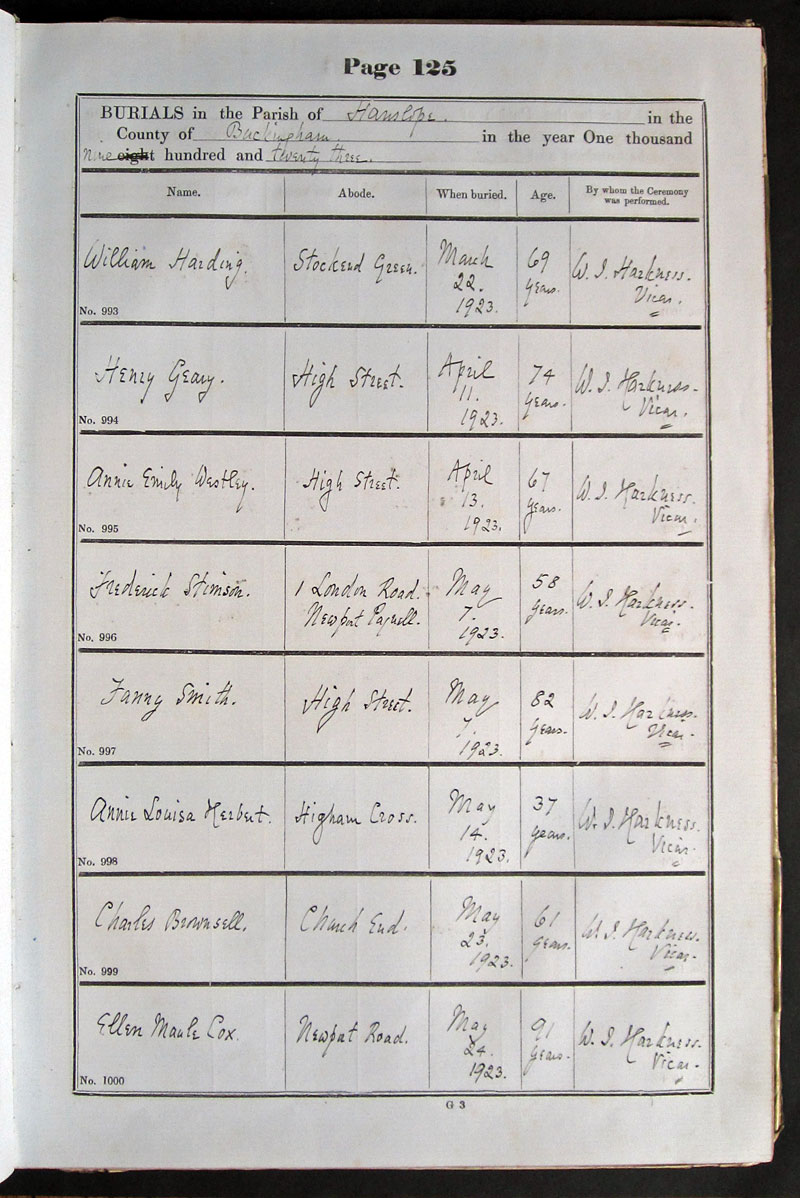 Page 125
BURIALS in the Parish of Hanslope. in the
County of Buckingham. in the year One thousand
Nine eight hundred and twenty three.
Name. Abode. When buried. Age. By whom the Ceremony was performed.
William Harding. Stockend Green. March 22. 1923. 69 years. W. J. Harkness. Vicar.
No. 993
Henry Geary. High Street. April 11. 1923. 74 years. W. J. Harkness. Vicar.
No. 994
Annie Emily Westley. High Street. April 13. 1923. 67 years. W. J. Harkness. Vicar.
No. 995
Frederick Stimson. 1 London Road. Newport Pagnell. May 7. 1923. 58 years. W. J. Harkness. Vicar.
No. 996
Fanny Smith. High Street. May 7. 1923. 82 years. W. J. Harkness. Vicar.
No. 997
Annie Louisa Herbert. Higham Cross. May 14. 1923. 37 years. W. J. Harkness. Vicar.
No. 998
Charles Brownsell. Church End. May 23. 1923. 61 years. W. J. Harkness. Vicar.
No. 999
Ellen Maule Cox. Newport Road. May 24. 1923. 91 years. W. J. Harkness. Vicar.
No. 1000
G 3